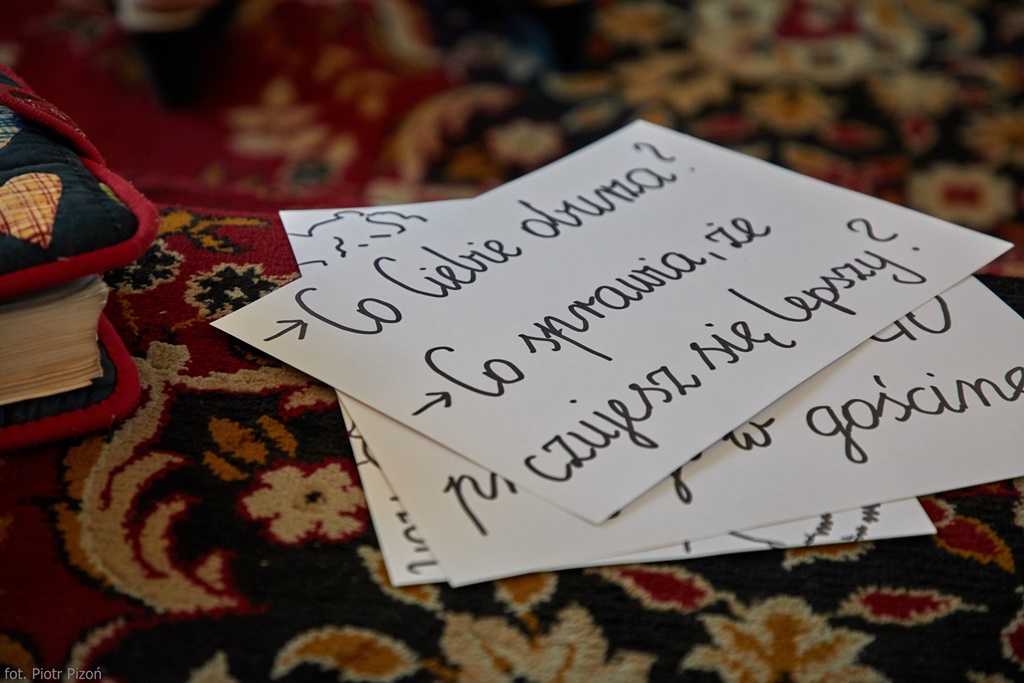 → Co Ciebie oburza?
→ Co sprawia, że
czujesz się lepszy?
w gościnę
fot. Piotr Pizoń